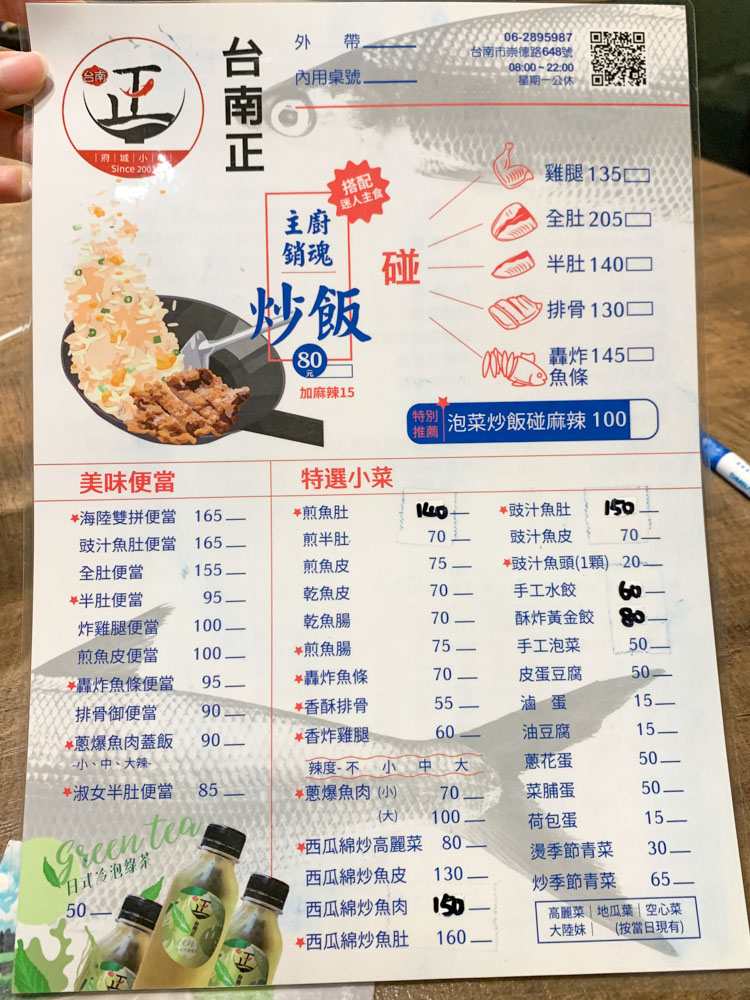 台南
正
府城小
Since 2005
台南正
外 帶
內用桌號
06-2895987
台南市崇德路648號
08:00~22:00
星期一公休
主廚
銷魂
炒飯
80元
加麻辣15
搭配
迷人主食
碰
雞腿135
全肚205
半肚140
排骨130
轟炸145
魚條
特別
推薦
泡菜炒飯碰麻辣 100
美味便當
海陸雙拼便當 165
豉汁魚肚便當 165
全肚便當 155
半肚便當 95
炸雞腿便當 100
煎魚皮便當 100
轟炸魚條便當 95
排骨御便當 90
蔥爆魚肉蓋飯 90
-小、中、大辣-
淑女半肚便當 85
Green tea
日式冷泡綠茶
50
正
正
正
特選小菜
煎魚肚 140
煎半肚 70
煎魚皮 75
乾魚皮 70
乾魚腸 70
煎魚腸 75
轟炸魚條 70
香酥排骨 55
香炸雞腿 60
辣度-不 小 中 大
蔥爆魚肉 (小) 70
(大) 100
西瓜綿炒高麗菜 80
西瓜綿炒魚皮 130
西瓜綿炒魚肉 150
西瓜綿炒魚肚 160
豉汁魚肚 150
豉汁魚皮 70
豉汁魚頭(1顆) 20
手工水餃
酥炸黃金餃 80
手工泡菜 50
皮蛋豆腐 50
滷 蛋 15
油豆腐 15
蔥花蛋 50
菜脯蛋 50
荷包蛋 15
燙季節青菜 30
炒季節青菜 65
高麗菜│地瓜葉│空心菜
大陸妹│ (按當日現有)